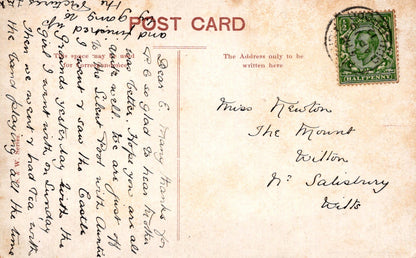 POST CARD
This space may be used
for correspondence
The Address only to be
written here
HALFPENNY
Miss Newton
The Mount
Wilton
Nr Salisbury
Wilts
Dear E. Many thanks for
P.C. so glad to hear Mother
was better. Hope you are all
quite well. We are just off
to the Silent Pool with Auntie
went & saw the Castle
& Grounds yesterday with the
girl I went with on Sunday
then we went & had Tea with
the band playing all the time